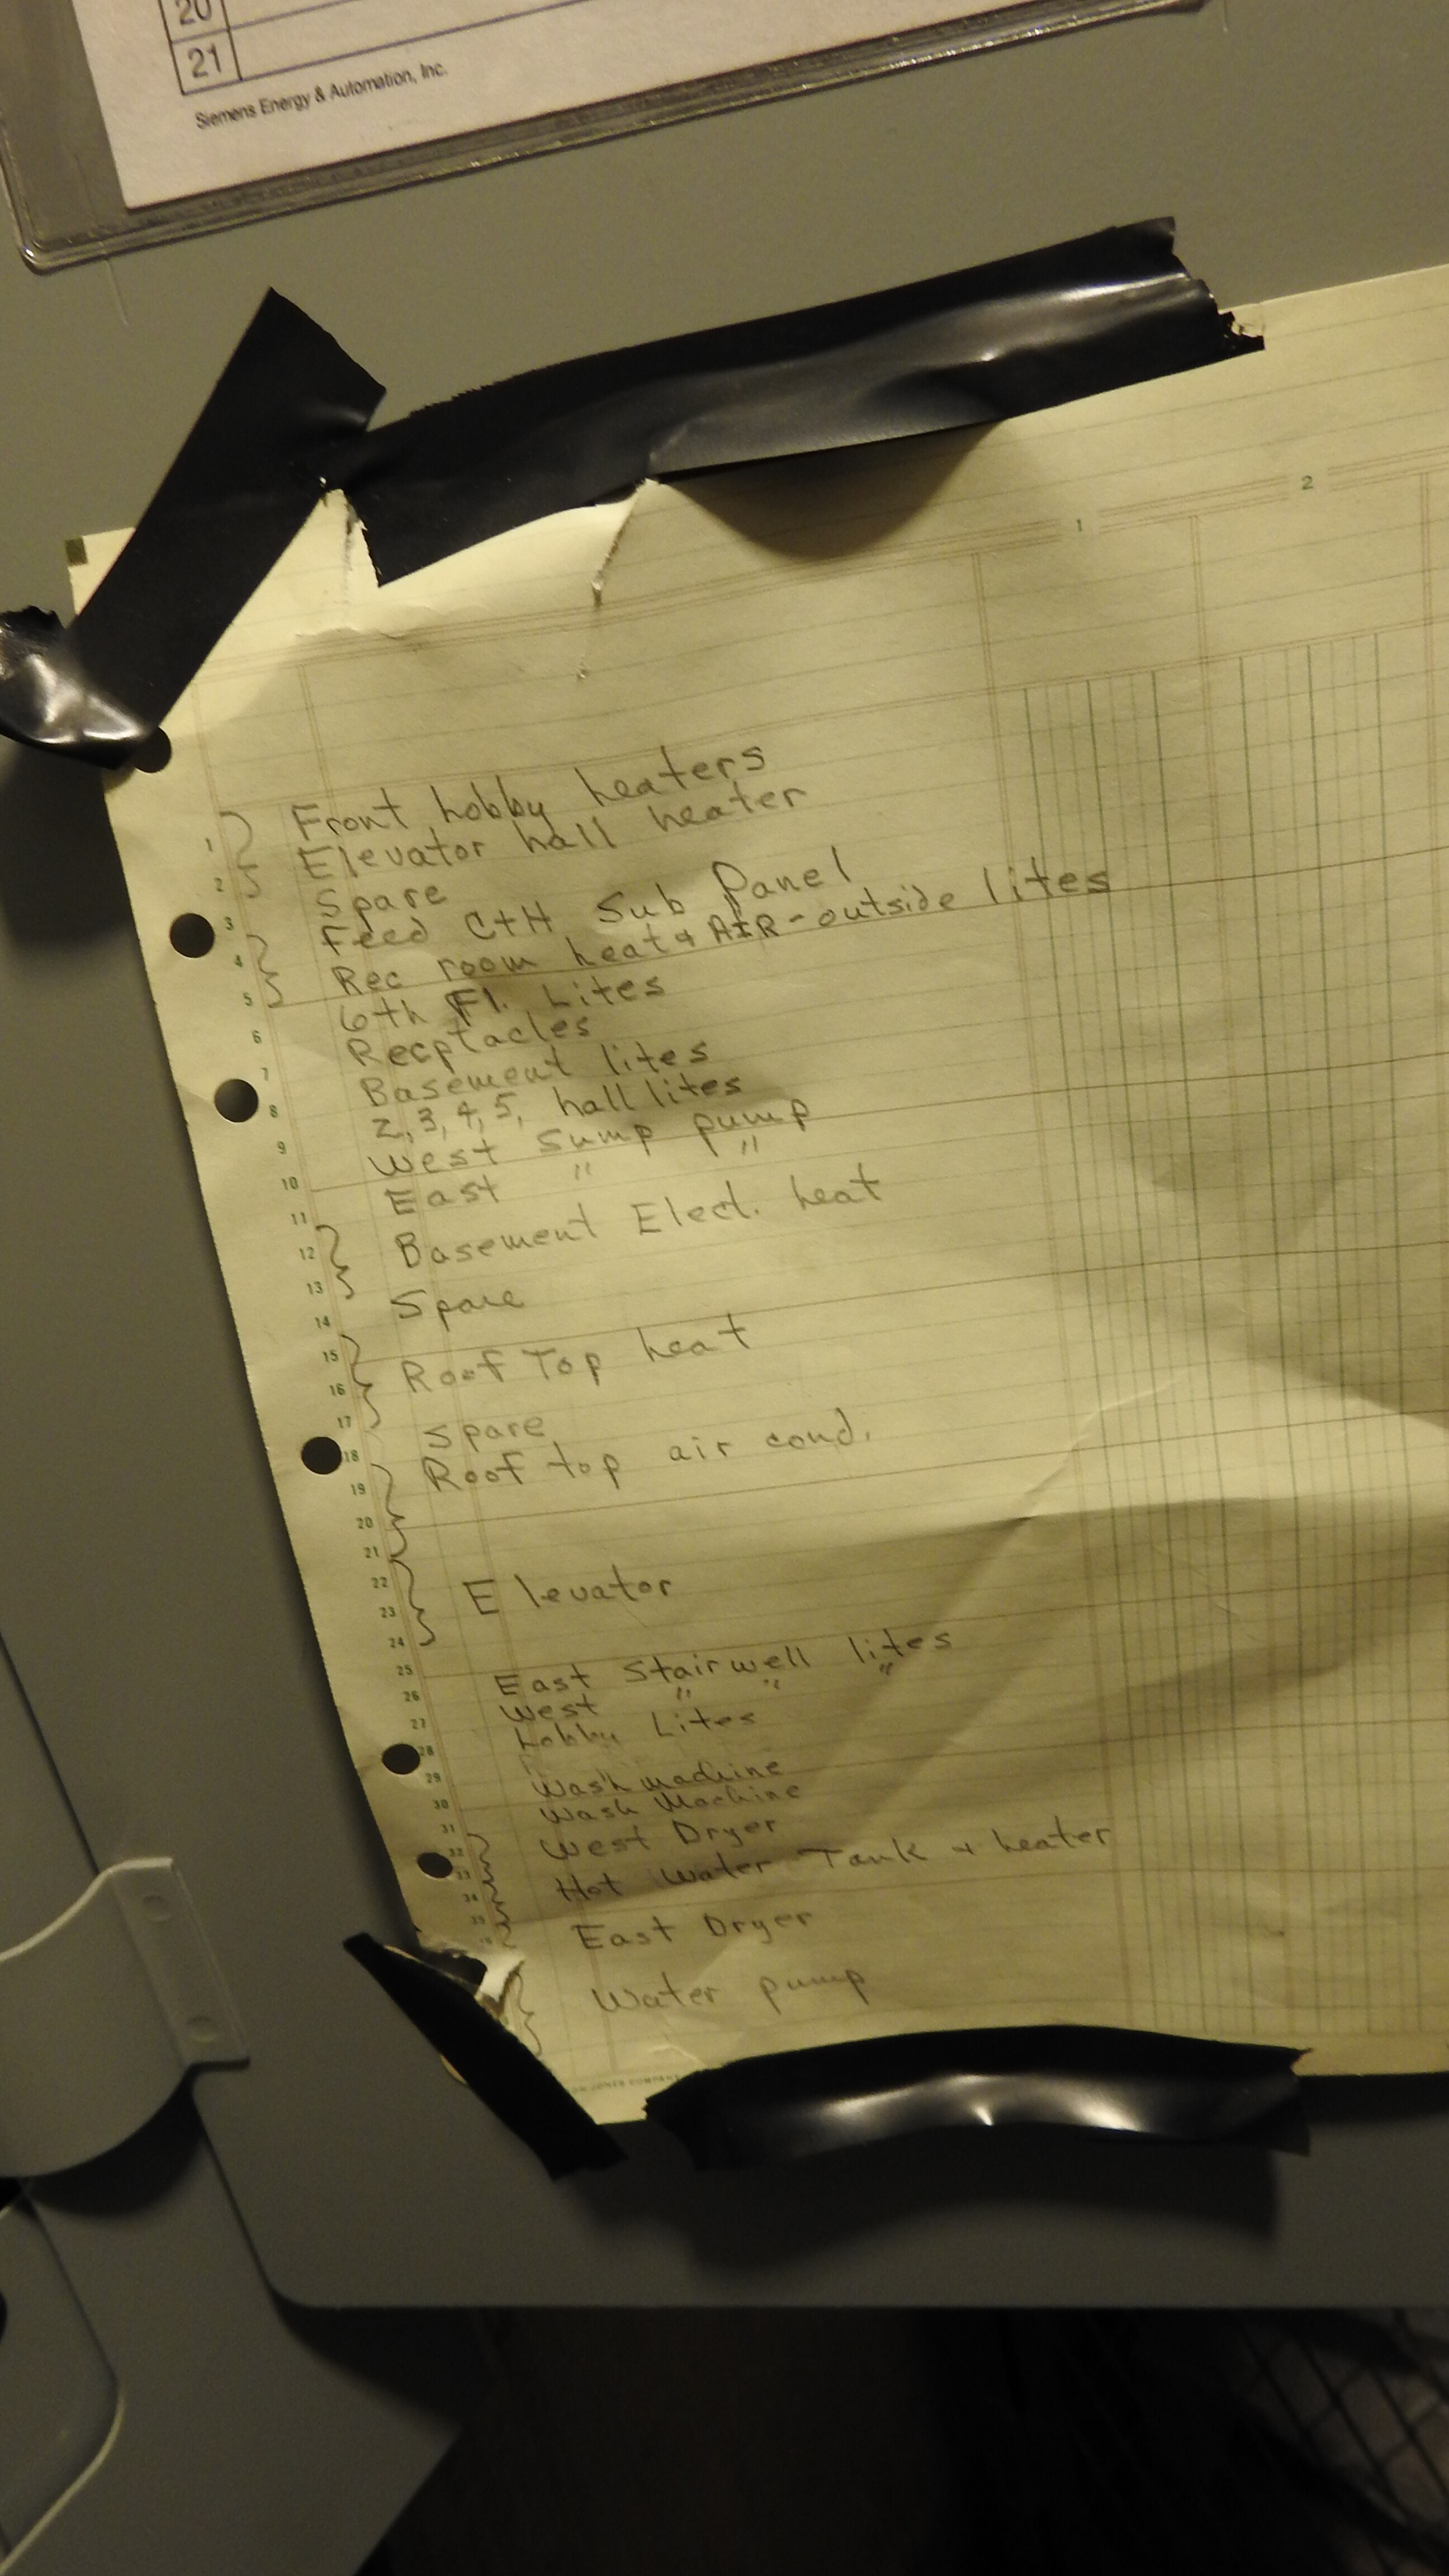 20
21
Siemens Energy & Automation, Inc.
1
2
Front Lobby heaters
1 Elevator hall heater
2 Spare
3 Feed C+H Sub Panel
4 Rec room heat & AIR - outside lites
5 6th Fl. Lites
6 Recptacles
7 Basement lites
8 2, 3, 4, 5, hall lites
9 West Sump pump
10 East " "
11
12 Basement Elect. heat
13
14 Spare
15
16 Roof Top heat
17
18 Spare
19 Roof top air cond.
20
21
22
23 Elevator
24
25
26 East Stairwell lites
27 West " " "
28 Lobby Lites
29 Wash machine
30 Wash Machine
31 West Dryer
32
33 Hot Water Tank & heater
34
35 East Dryer
Water pump